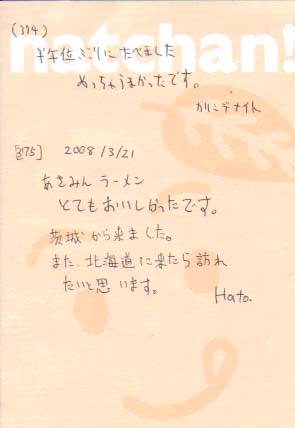 (374)
natchan!
半年位ぶりにたべました
めっちゃうまかったです。
カリンデナイト
[375] 2008/3/21
あきみん ラーメン
とてもおいしかったです。
茨城から来ました。
また、北海道に来たら訪れ
たいと思います。
Hato.